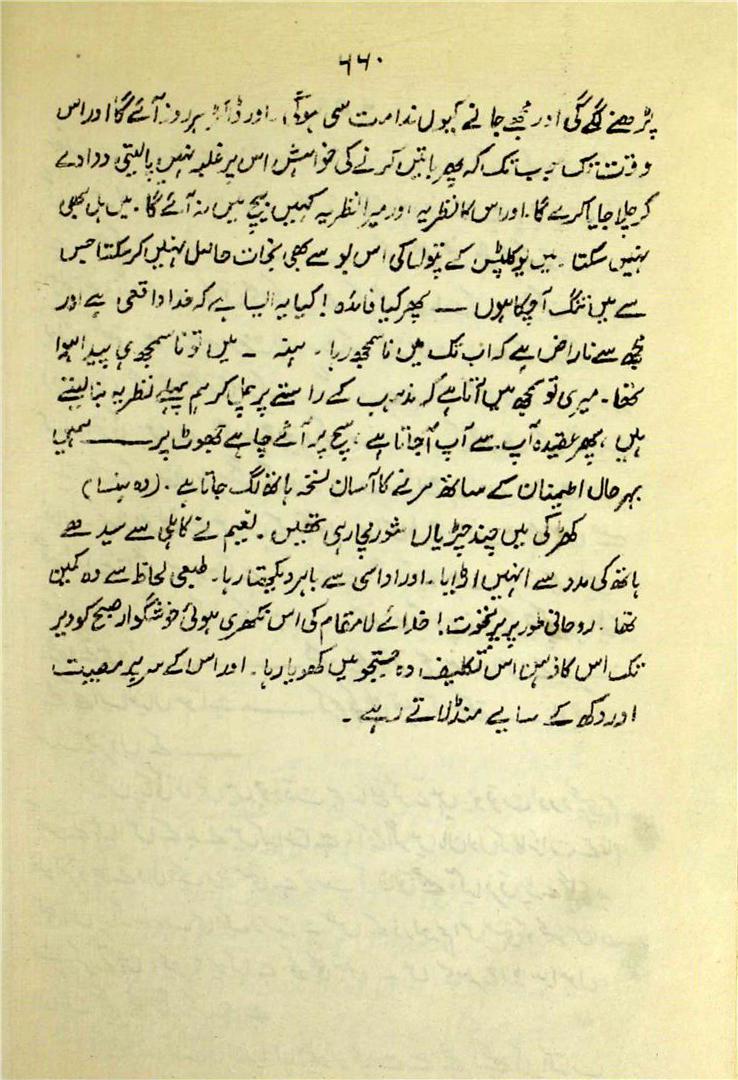 ۶۶۰
پڑھنے لگے گی اور مجھے جانے کیوں ندامت سی ہوگی۔ اور ڈاکٹر ہر روز آئے گا اور اس
وقت تک جب تک کہ پھر باتیں کرنے کی خواہش اس پر غلبہ نہیں پا لیتی دوا دے
کر چلا جایا کرے گا۔ اور اس کا نظریہ اور میرا نظریہ کہیں بیچ میں نہ آئے گا۔ میں ہل بھی
نہیں سکتا۔ میں یوکلپٹس کے پتوں کی اس بو سے بھی نجات حاصل نہیں کر سکتا جس
سے میں تنگ آ چکا ہوں — پھر کیا فائدہ! کیا یہ ایسا ہے کہ خدا واقعی ہے اور
مجھ سے ناراض ہے کہ اب تک میں ناسمجھ رہا۔ ہنہ ۔ میں تو ناسمجھ ہی پیدا ہوا
تھا۔ میری تو سمجھ میں آتا ہے کہ مذہب کے راستے پر چل کر ہم پہلے نظریہ بنا لیتے
ہیں، پھر عقیدہ آپ سے آپ آ جاتا ہے، سچ پر آئے چاہے جھوٹ پر — ہمیں
بہرحال اطمینان کے ساتھ مرنے کا آسان نسخہ ہاتھ لگ جاتا ہے۔ (وہ ہنسا)
کھڑکی میں چند چڑیاں شور مچا رہی تھیں۔ نعیم نے کاہلی سے سیدھے
ہاتھ کی مدد سے انہیں اڑایا۔ اور اداسی سے باہر دیکھتا رہا۔ طبعی لحاظ سے وہ کمین
تھا۔ روحانی طور پر پرنخوت! خدائے لامقام کی اس نکھری ہوئی خوشگوار صبح کو دیر
تک اس کا ذہن اس تکلیف دہ جستجو میں کھویا رہا۔ اور اس کے سر پر مصیبت
اور دکھ کے سایے منڈلاتے رہے۔